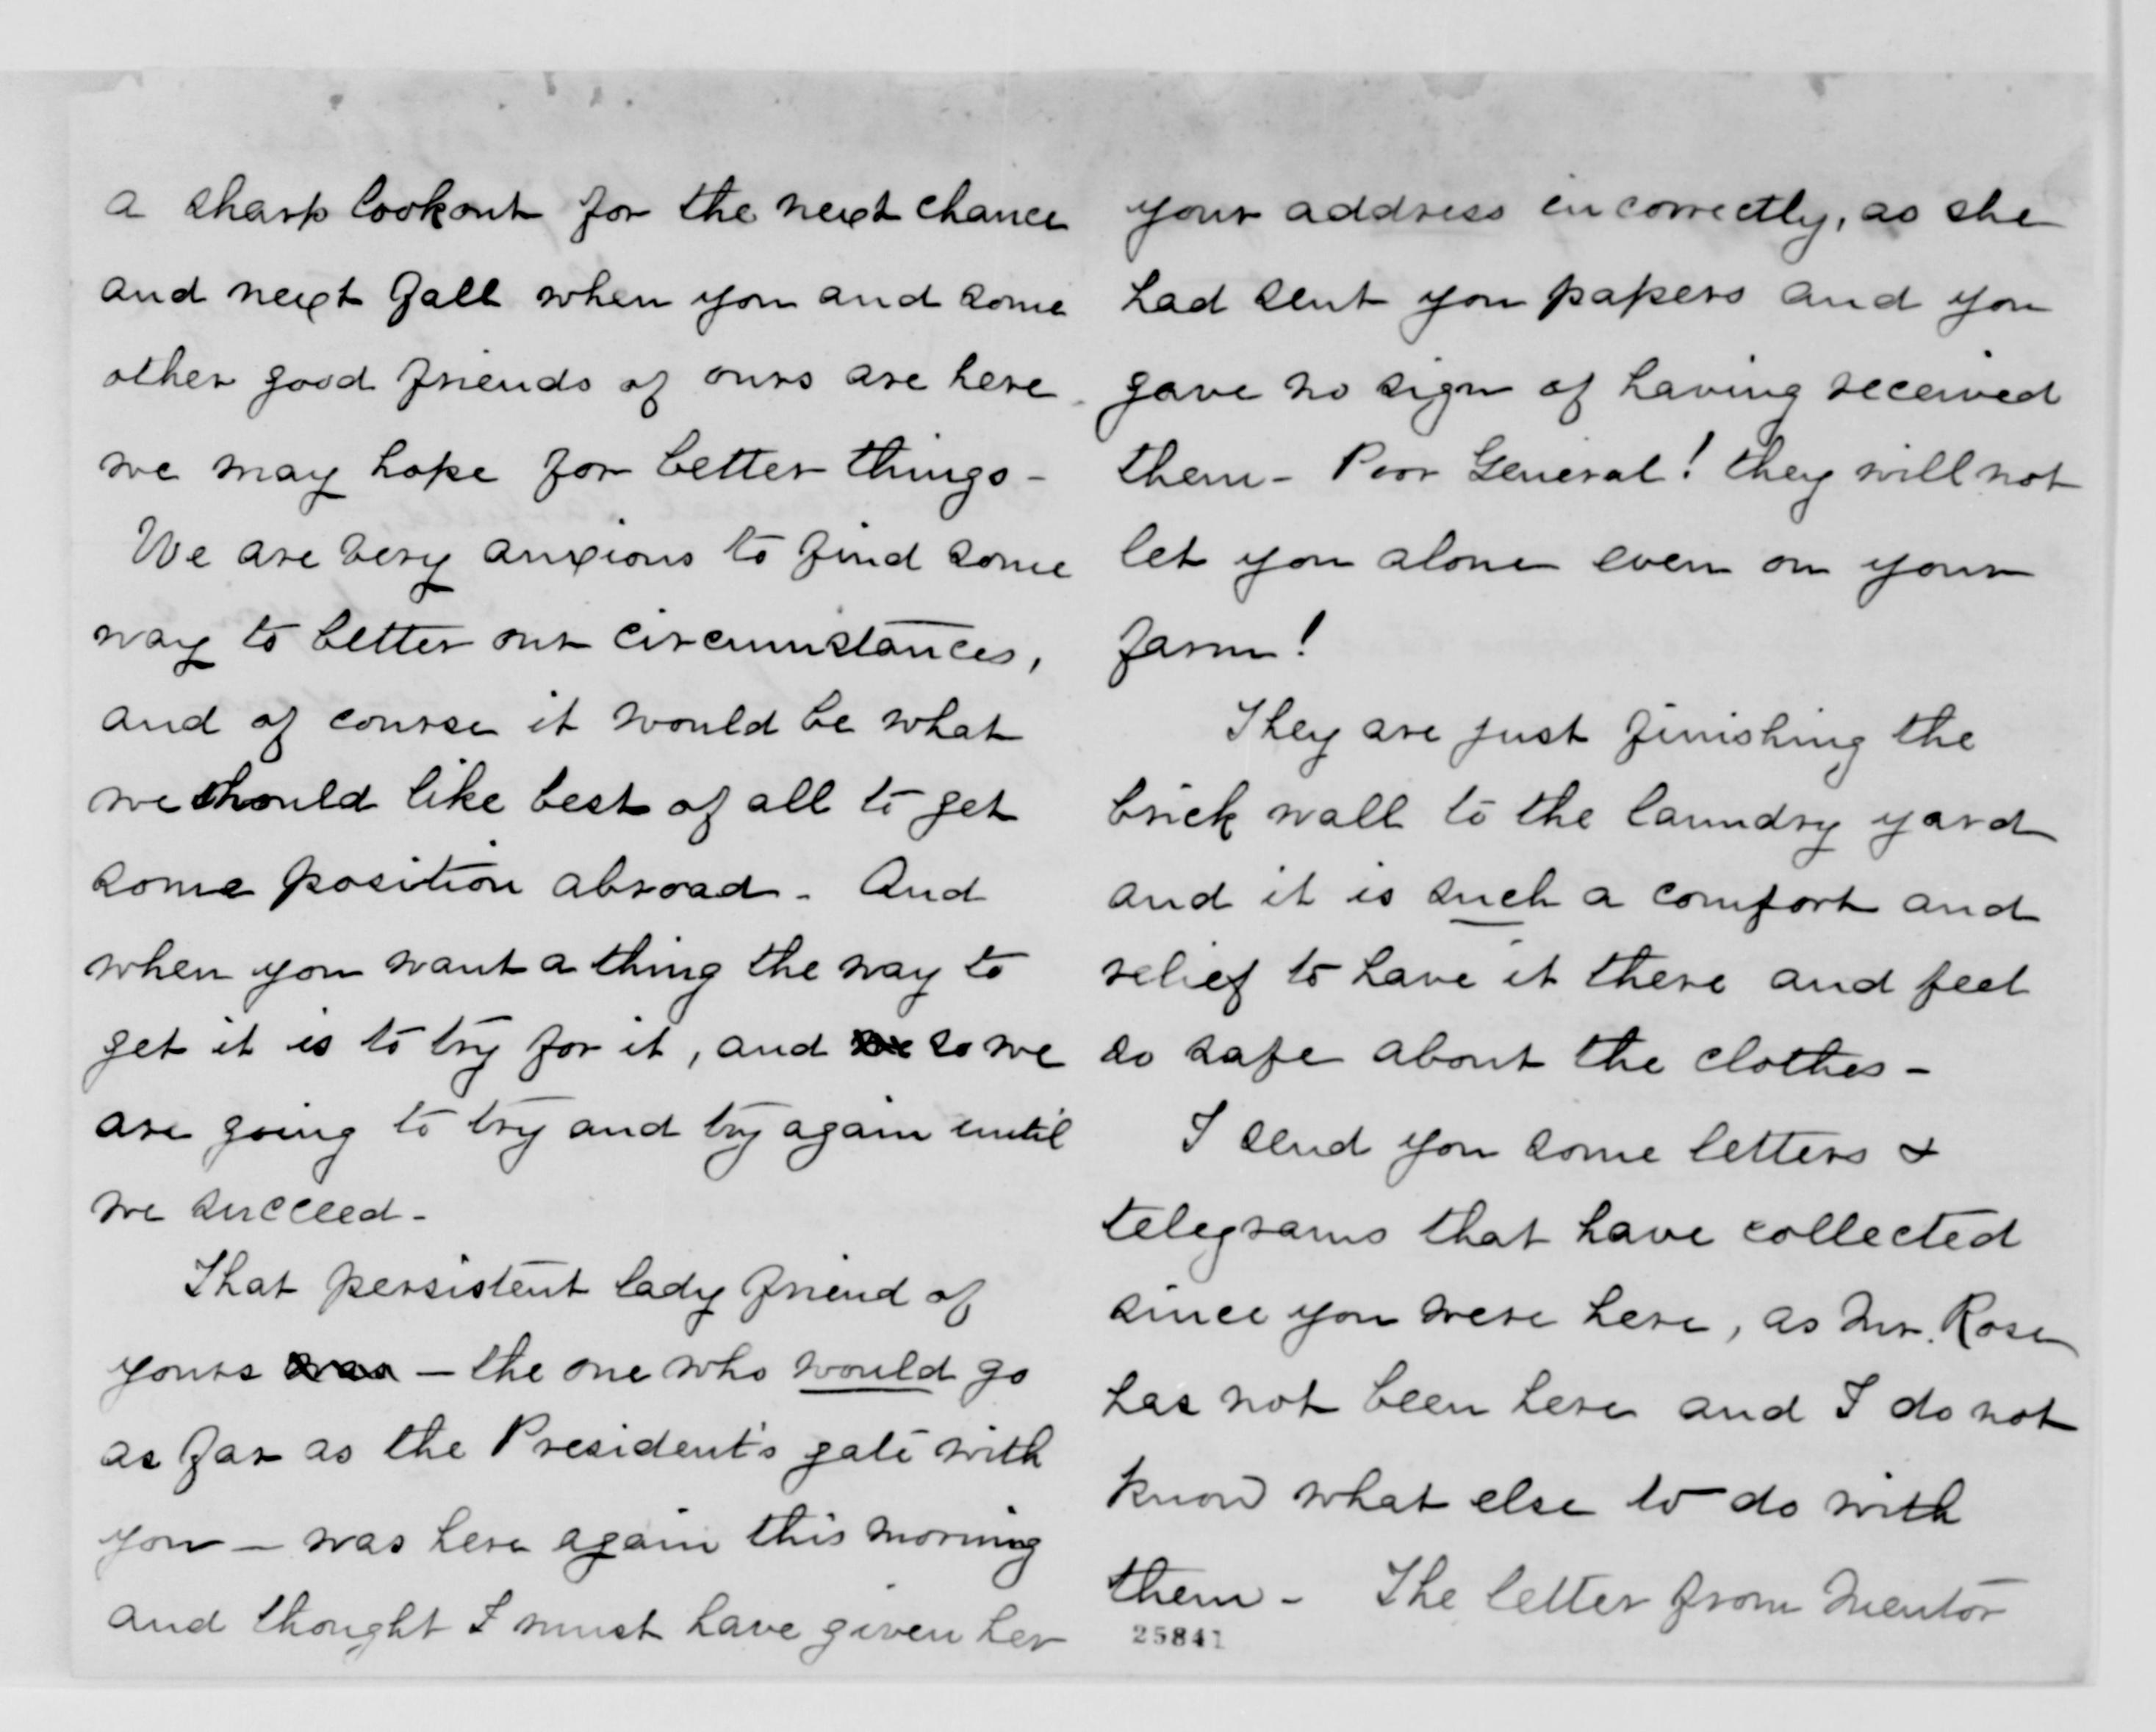 a sharp lookout for the next chance
and next Fall when you and some
other good friends of ours are here
we may hope for better things -
We are very anxious to find some
way to better our circumstances,
and of course it would be what
we should like best of all to get
some position abroad. And
when you want a thing the way to
get it is to try for it, and we so we
are going to try and try again until
we succeed -
That persistent lady friend of
yours was — the one who would go
as far as the President's gate with
you — was here again this morning
and thought I must have given her
your address incorrectly, as she
had sent you papers and you
gave no sign of having received
them - Poor General! they will not
let you alone even on your
farm!
They are just finishing the
brick wall to the laundry yard
and it is such a comfort and
relief to have it there and feel
so safe about the clothes -
I send you some letters &
telegrams that have collected
since you were here, as Mr. Rose
has not been here and I do not
know what else to do with
them - The letter from Mentor
25841